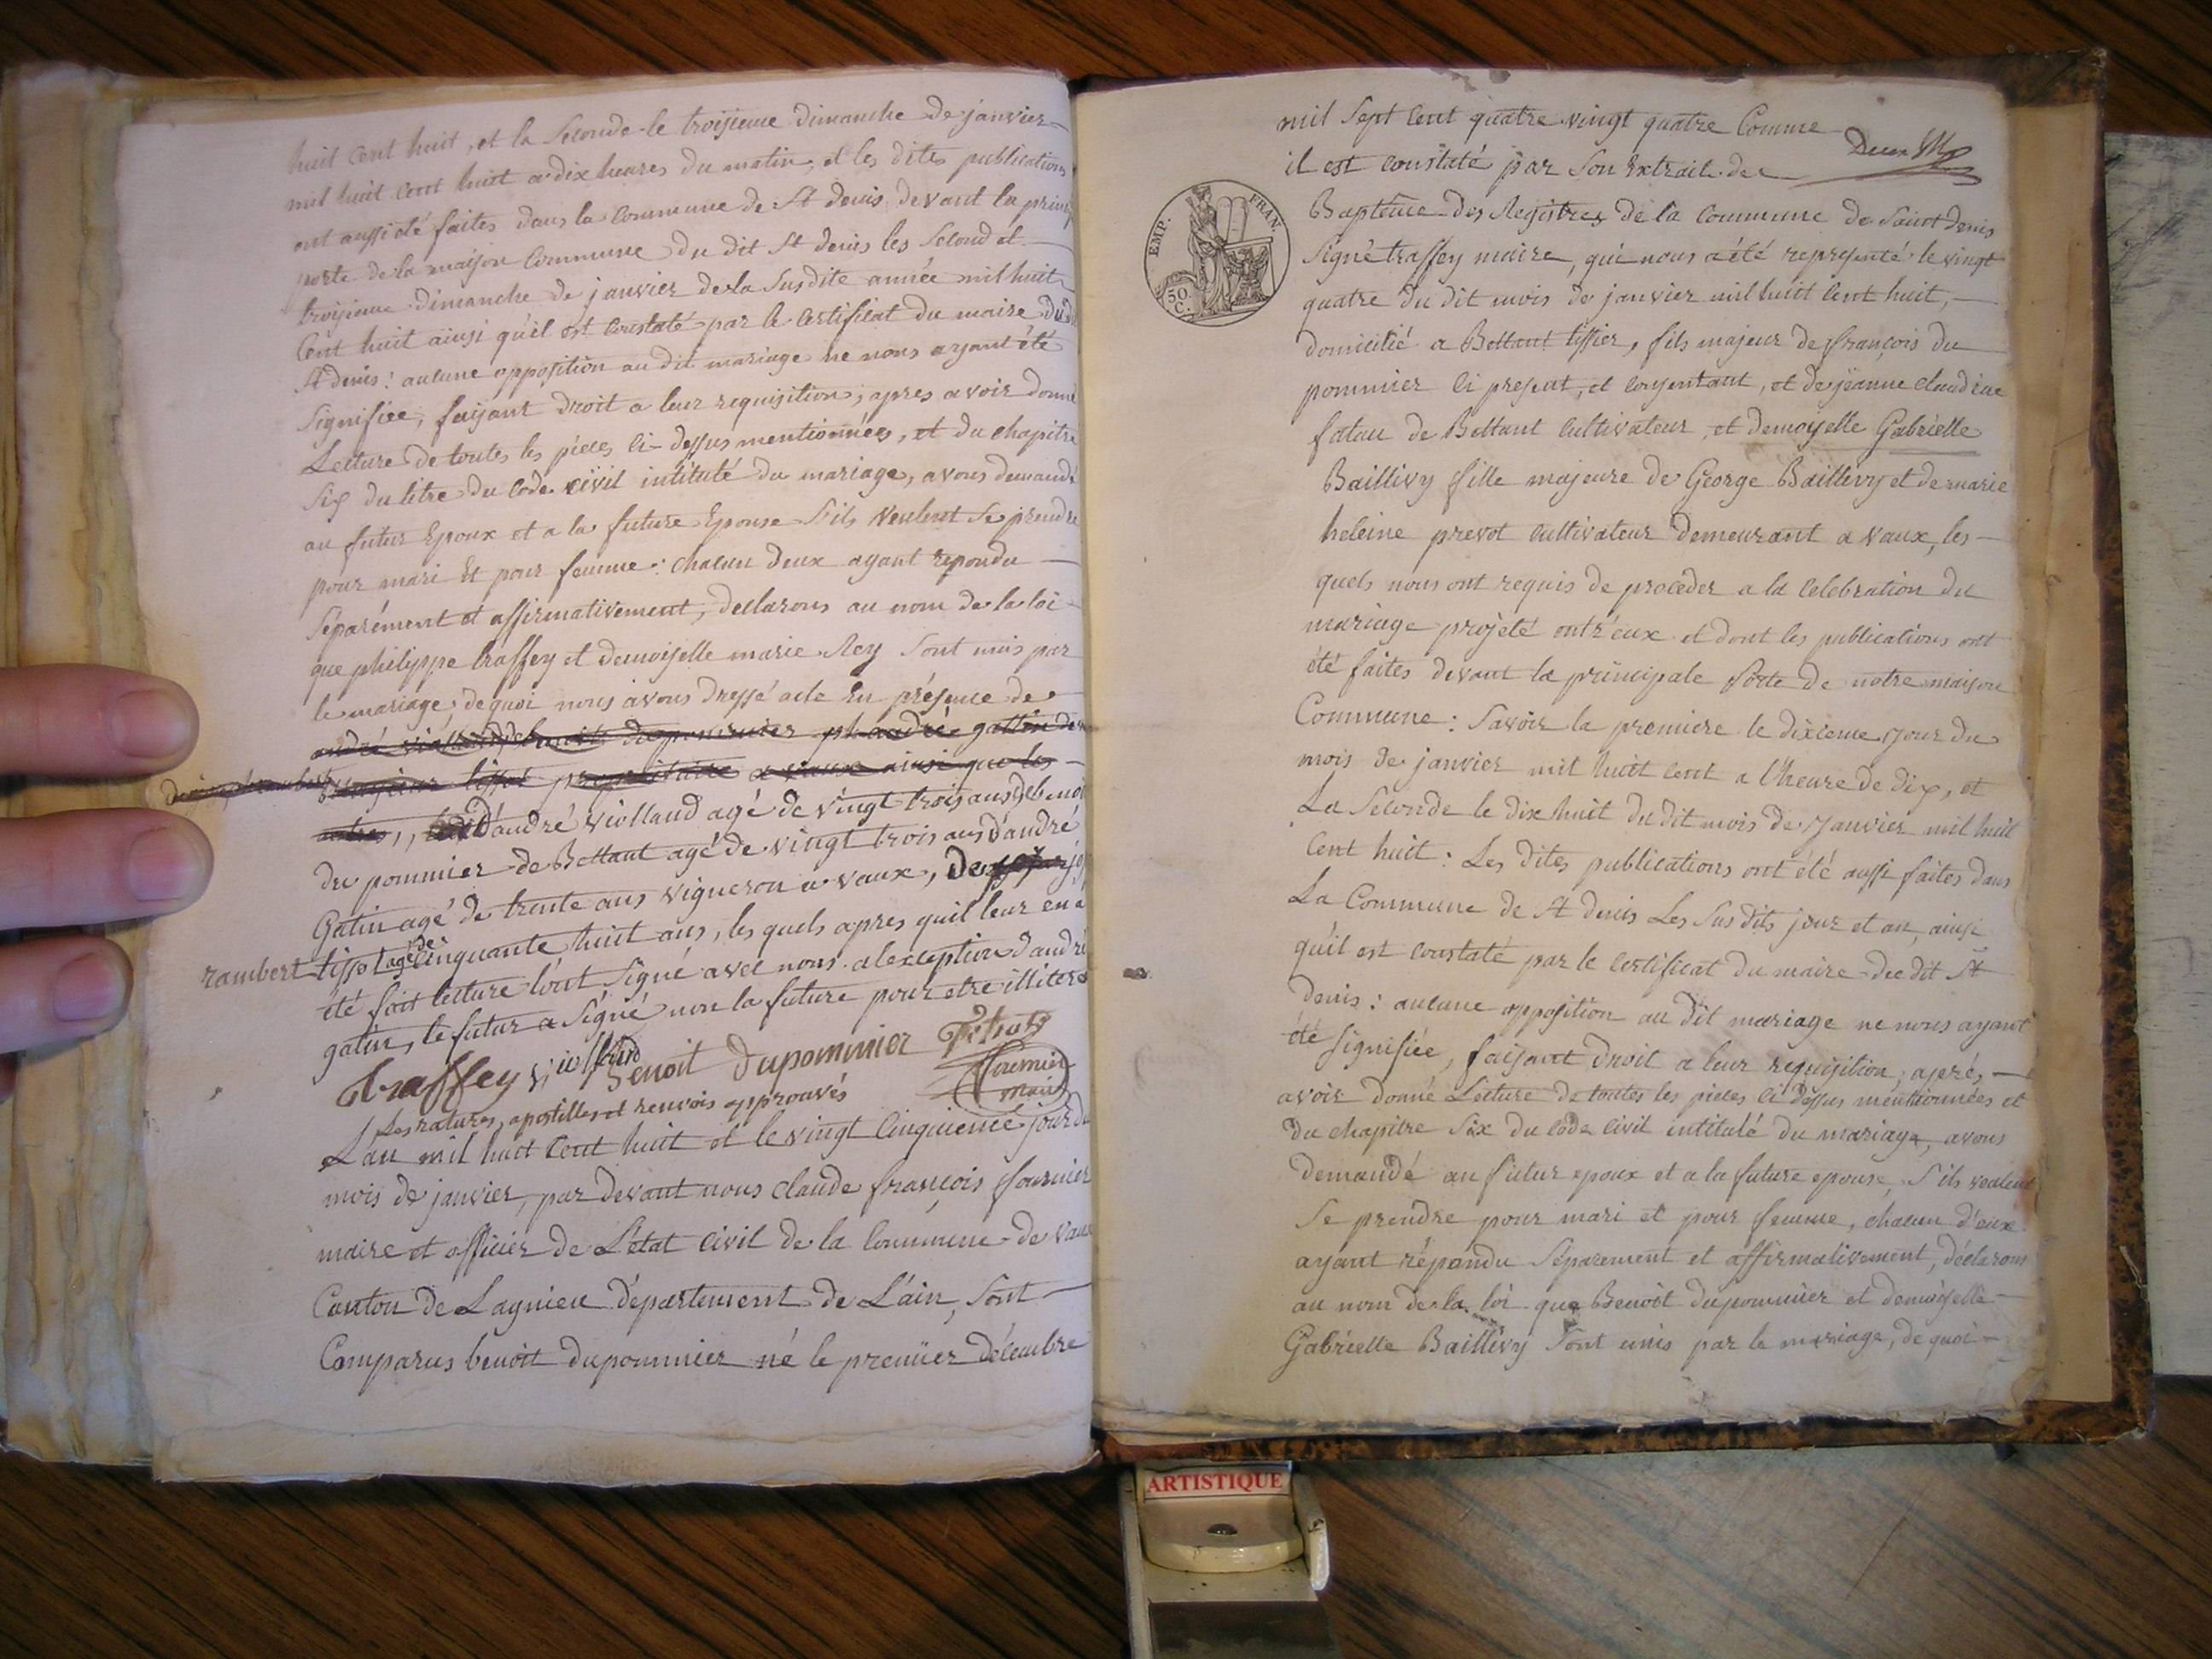 huit cent huit, et la seconde le troisieme dimanche de janvier
mil huit cent huit a dix heures du matin, et les dites publications
ont aussi été faites dans la commune de St denis devant la princip
porte de la maison commune du dit St denis les second et
troisieme dimanche de janvier de la susdite année mil huit
cent huit ainsi qu'il est constaté par le certificat du maire du d
St denis : aucune opposition au dit mariage ne nous ayant été
signifiée, faisant droit a leur requisition, apres avoir donné
Lecture de toutes les pieces ci-dessus mentionnées, et du chapitre
six du titre du code civil intitulé du mariage, avons demandé
au futur Epoux et a la future Epouse s'ils veulent se prendre
pour mari Et pour femme : chacun deux ayant repondu
séparément et affirmativement, declarons au nom de la loi
que philippe traffey et demoiselle marie Rey sont unis par
le mariage ; de quoi nous avons dressé acte En présence de
andré viollaud, benoit dupommier, andré gattin
tissot propriétaire a vaux ainsi que les
autres, d'andré viollaud agé de vingt trois ans, de benoi
du pommier de Bettant agé de vingt trois ans d'andré
Gatin agé de trente ans vigneron a vaux, de
rambert tissot agé de cinquante huit ans, les quels apres quil leur en a
été fait lecture l'ont signé avec nous a lexception d'andré
gatin, le futur a signé non la future pour etre illiteré
traffey viollaud Benoit Dupommier Tissot
fournier
maire
Les ratures, apostilles et renvois approuvés
L'an mil huit cent huit et le vingt cinquieme jour du
mois de janvier, par devant nous claude françois fournier
maire et officier de L'état civil de la commune de vaux
Canton de Lagnieu département de L'ain, sont
Comparus benoit dupommier né le premier décembre
Deux
mil sept cent quatre vingt quatre Comme
il est constaté par son Extrait de
EMP. FRAN.
50 C.
Baptême des Registres de la commune de Saint Denis
signé traffey maire, qui nous a été representé le vingt
quatre du dit mois de janvier mil huit cent huit,
domicilié a Bettant tissier, fils majeur de françois du
pommier ci present, et consentant, et de jeanne claudine
fatau de Bettant cultivateur, et demoiselle Gabrielle
Baillivy fille majeure de George Baillivy et de marie
heleine prevot cultivateur demeurant a vaux, les
quels nous ont requis de proceder a la celebration du
mariage projeté entr'eux et dont les publications ont
été faites devant la principale porte de notre maison
Commune : savoir la premiere le dixieme jour du
mois de janvier mil huit cent a l'heure de dix, et
La seconde le dix huit du dit mois de janvier mil huit
cent huit : Les dites publications ont été aussi faites dans
La Commune de St denis Les sus dits jour et an, ainsi
qu'il est constaté par le certificat du maire du dit St
denis : aucune opposition au dit mariage ne nous ayant
été signifiée, faisant droit a leur requisition, aprés
avoir donné Lecture de toutes les pieces ci dessus mentionnées et
du chapitre six du code civil intitulé du mariage, avons
demandé au futur epoux et a la future epouse, s'ils veulent
se prendre pour mari et pour femme, chacun d'eux
ayant répondu séparement et affirmativement, déclarons
au nom de la loi que Benoit dupommier et demoiselle
Gabrielle Baillivy sont unis par le mariage, de quoi
ARTISTIQUE